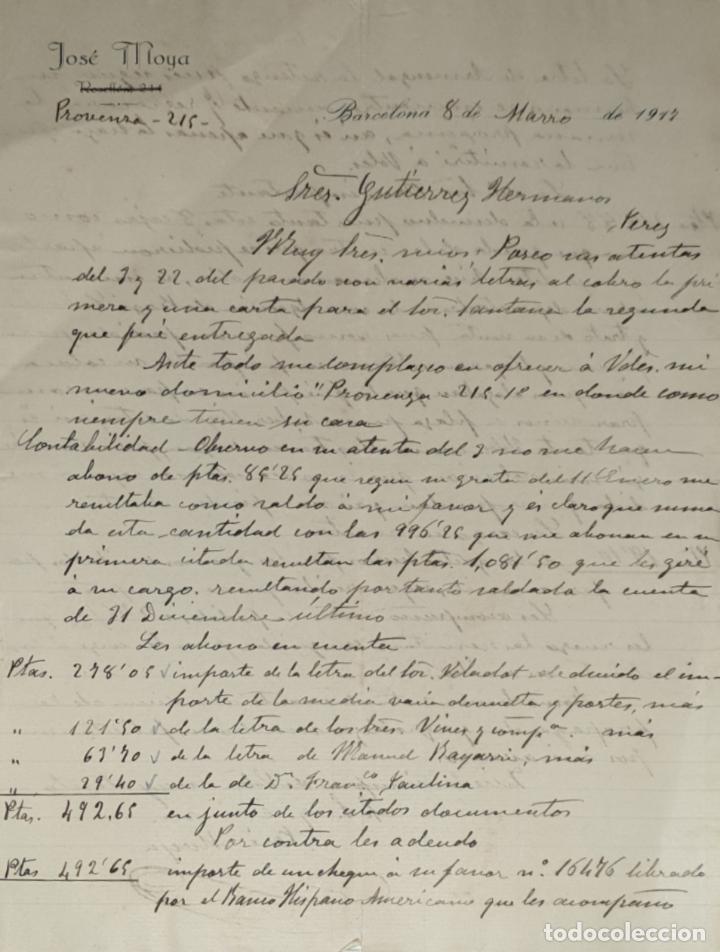 José Moya
Rosellón 244
Provenza - 215 -
Barcelona 8 de Marzo de 1917
Sres. Gutierrez Hermanos
Jerez
Muy Srēs. mios: Poseo sus atentas
del 3 y 22 del pasado con varias letras al cobro la pri
mera y una carta para el Sor. Santana la segunda
que fué entregada
Ante todo me complazco en ofrecer á Vdes. mi
nuevo domicilio "Provenza - 215 - 1º en donde como
siempre tienen su casa
Contabilidad - Observo en su atenta del 3 no me hacen
abono de ptas. 85'25 que segun su grata del 11 Enero me
resultaba como saldo á mi favor y és claro que suma
da esta cantidad con las 996'25 que me abonan en su
primera citada resultan las ptas. 1,081'50 que les giré
á su cargo. resultando por tanto saldada la cuenta
de 31 Diciembre último
Les abono en cuenta
Ptas. 278'05 importe de la letra del Sor. Viladot deducido el im-
porte de la media vacia devuelta y portes, más
" 121'50 de la letra de los Srēs. Vives y compª. más
" 63'70 de la letra de Manuel Bayarri, más
" 29'40 de la de Dn. Franco Paulina
Ptas. 492,65 en junto de los citados documentos
Por contra les adeudo
Ptas 492'65 importe de un cheque á su favor nº. 16476 librado
por el Banco Hispano Americano que les acompaño
todocoleccion